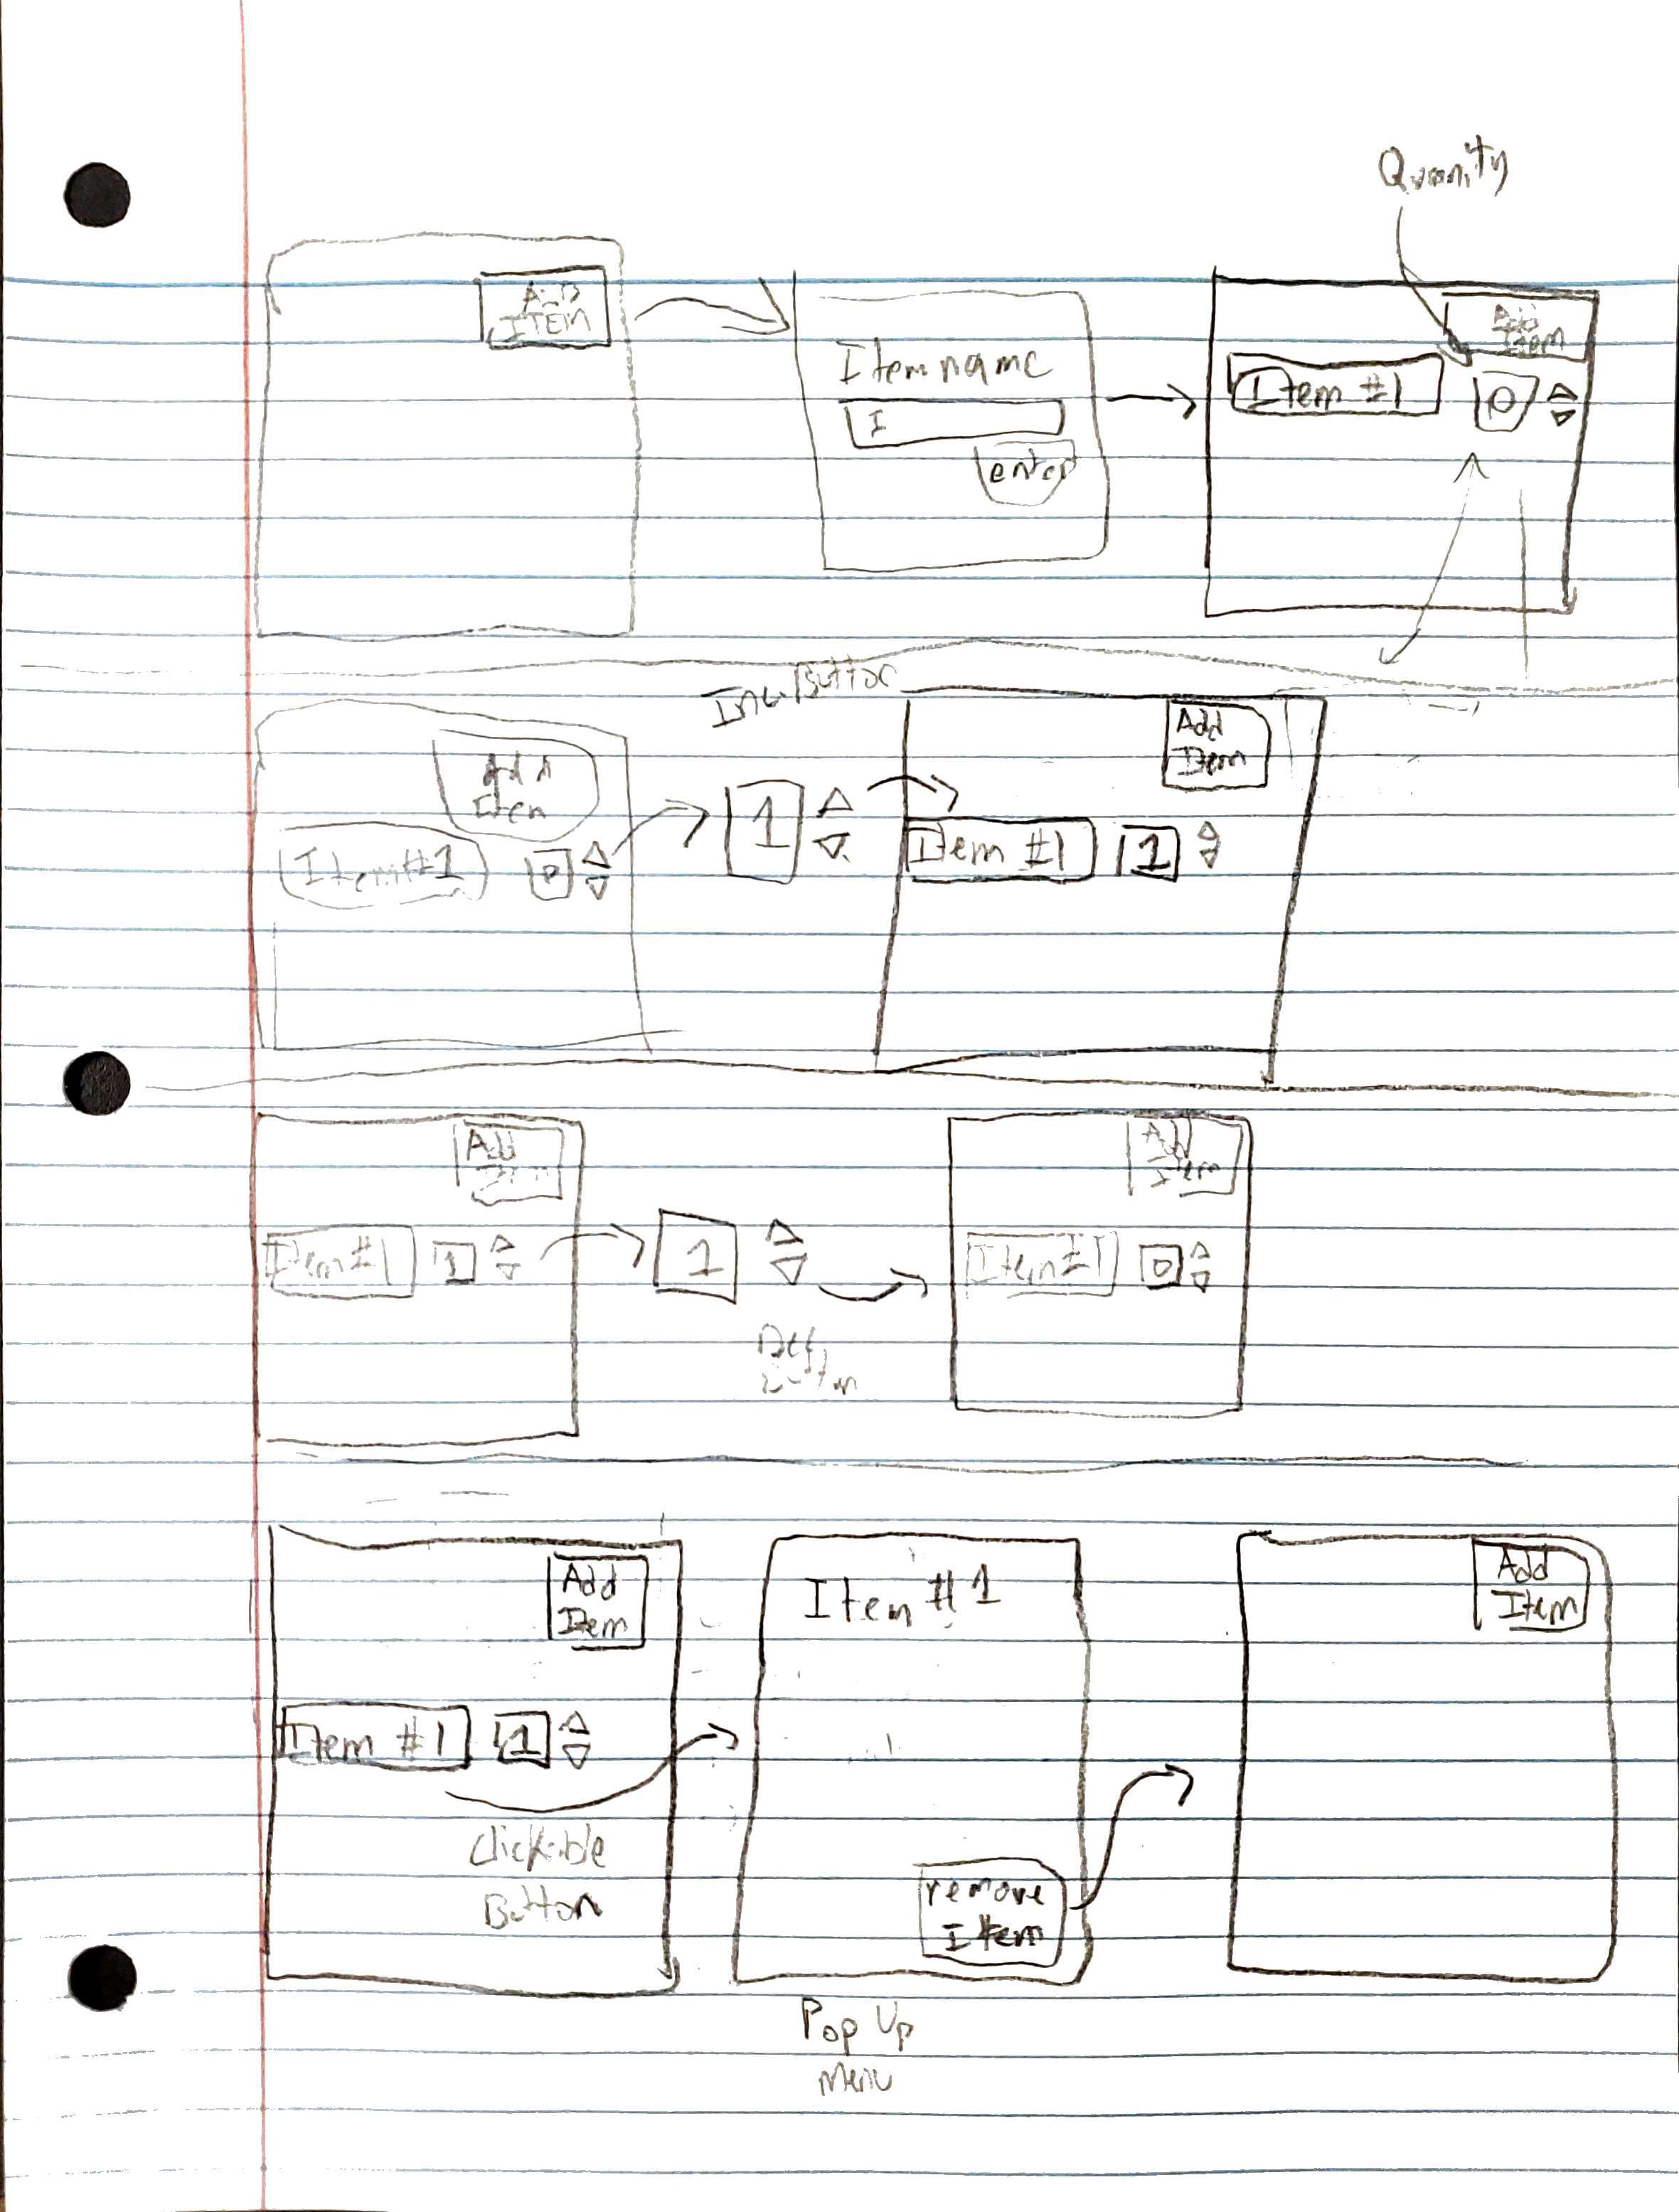 Quanity
Add
ITEM
Item name
I
enter
Add
Item
Item #1
0
Button
Add
Item
Item #1
0
1
Add
Item
Item #1
1
Add
Item
Item #1
1
1
Add
Item
Item #1
0
Add
Item
Item #1
1
Clickable
Button
Item #1
remove
Item
Pop Up
Menu
Add
Item